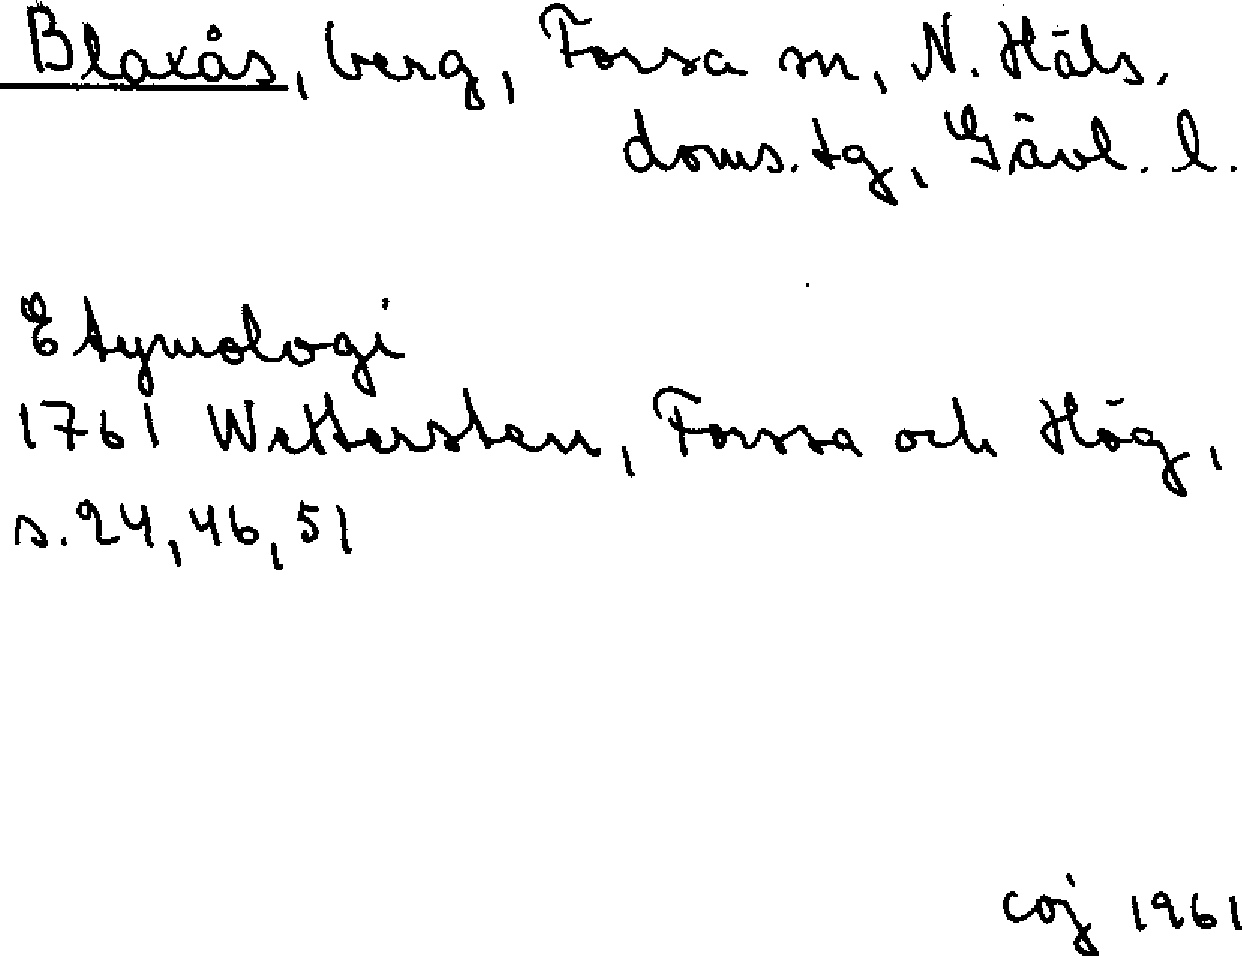 Blaxås, berg, Forsa sn, N. Häls.
doms.tg, Gävl. l.
Etymologi
1761 Wettersten, Forssa och Hög,
s. 24, 46, 51
coj 1961